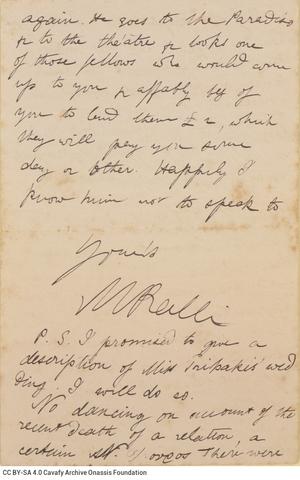 again. He goes to the Paradiso
or to the théatre & looks one
of those fellows who would come
up to you & affably beg of
you to lend them £2, which
they will pay you some
day or other. Happily I
know him not to speak to
Your's
MRalli
P.S. I promised to give a
description of Miss Tripakis' wed
ding. I will do so.
No dancing on account of the
recent death of a relation, a
certain There were
CC BY-SA 4.0 Cavafy Archive Onassis Foundation